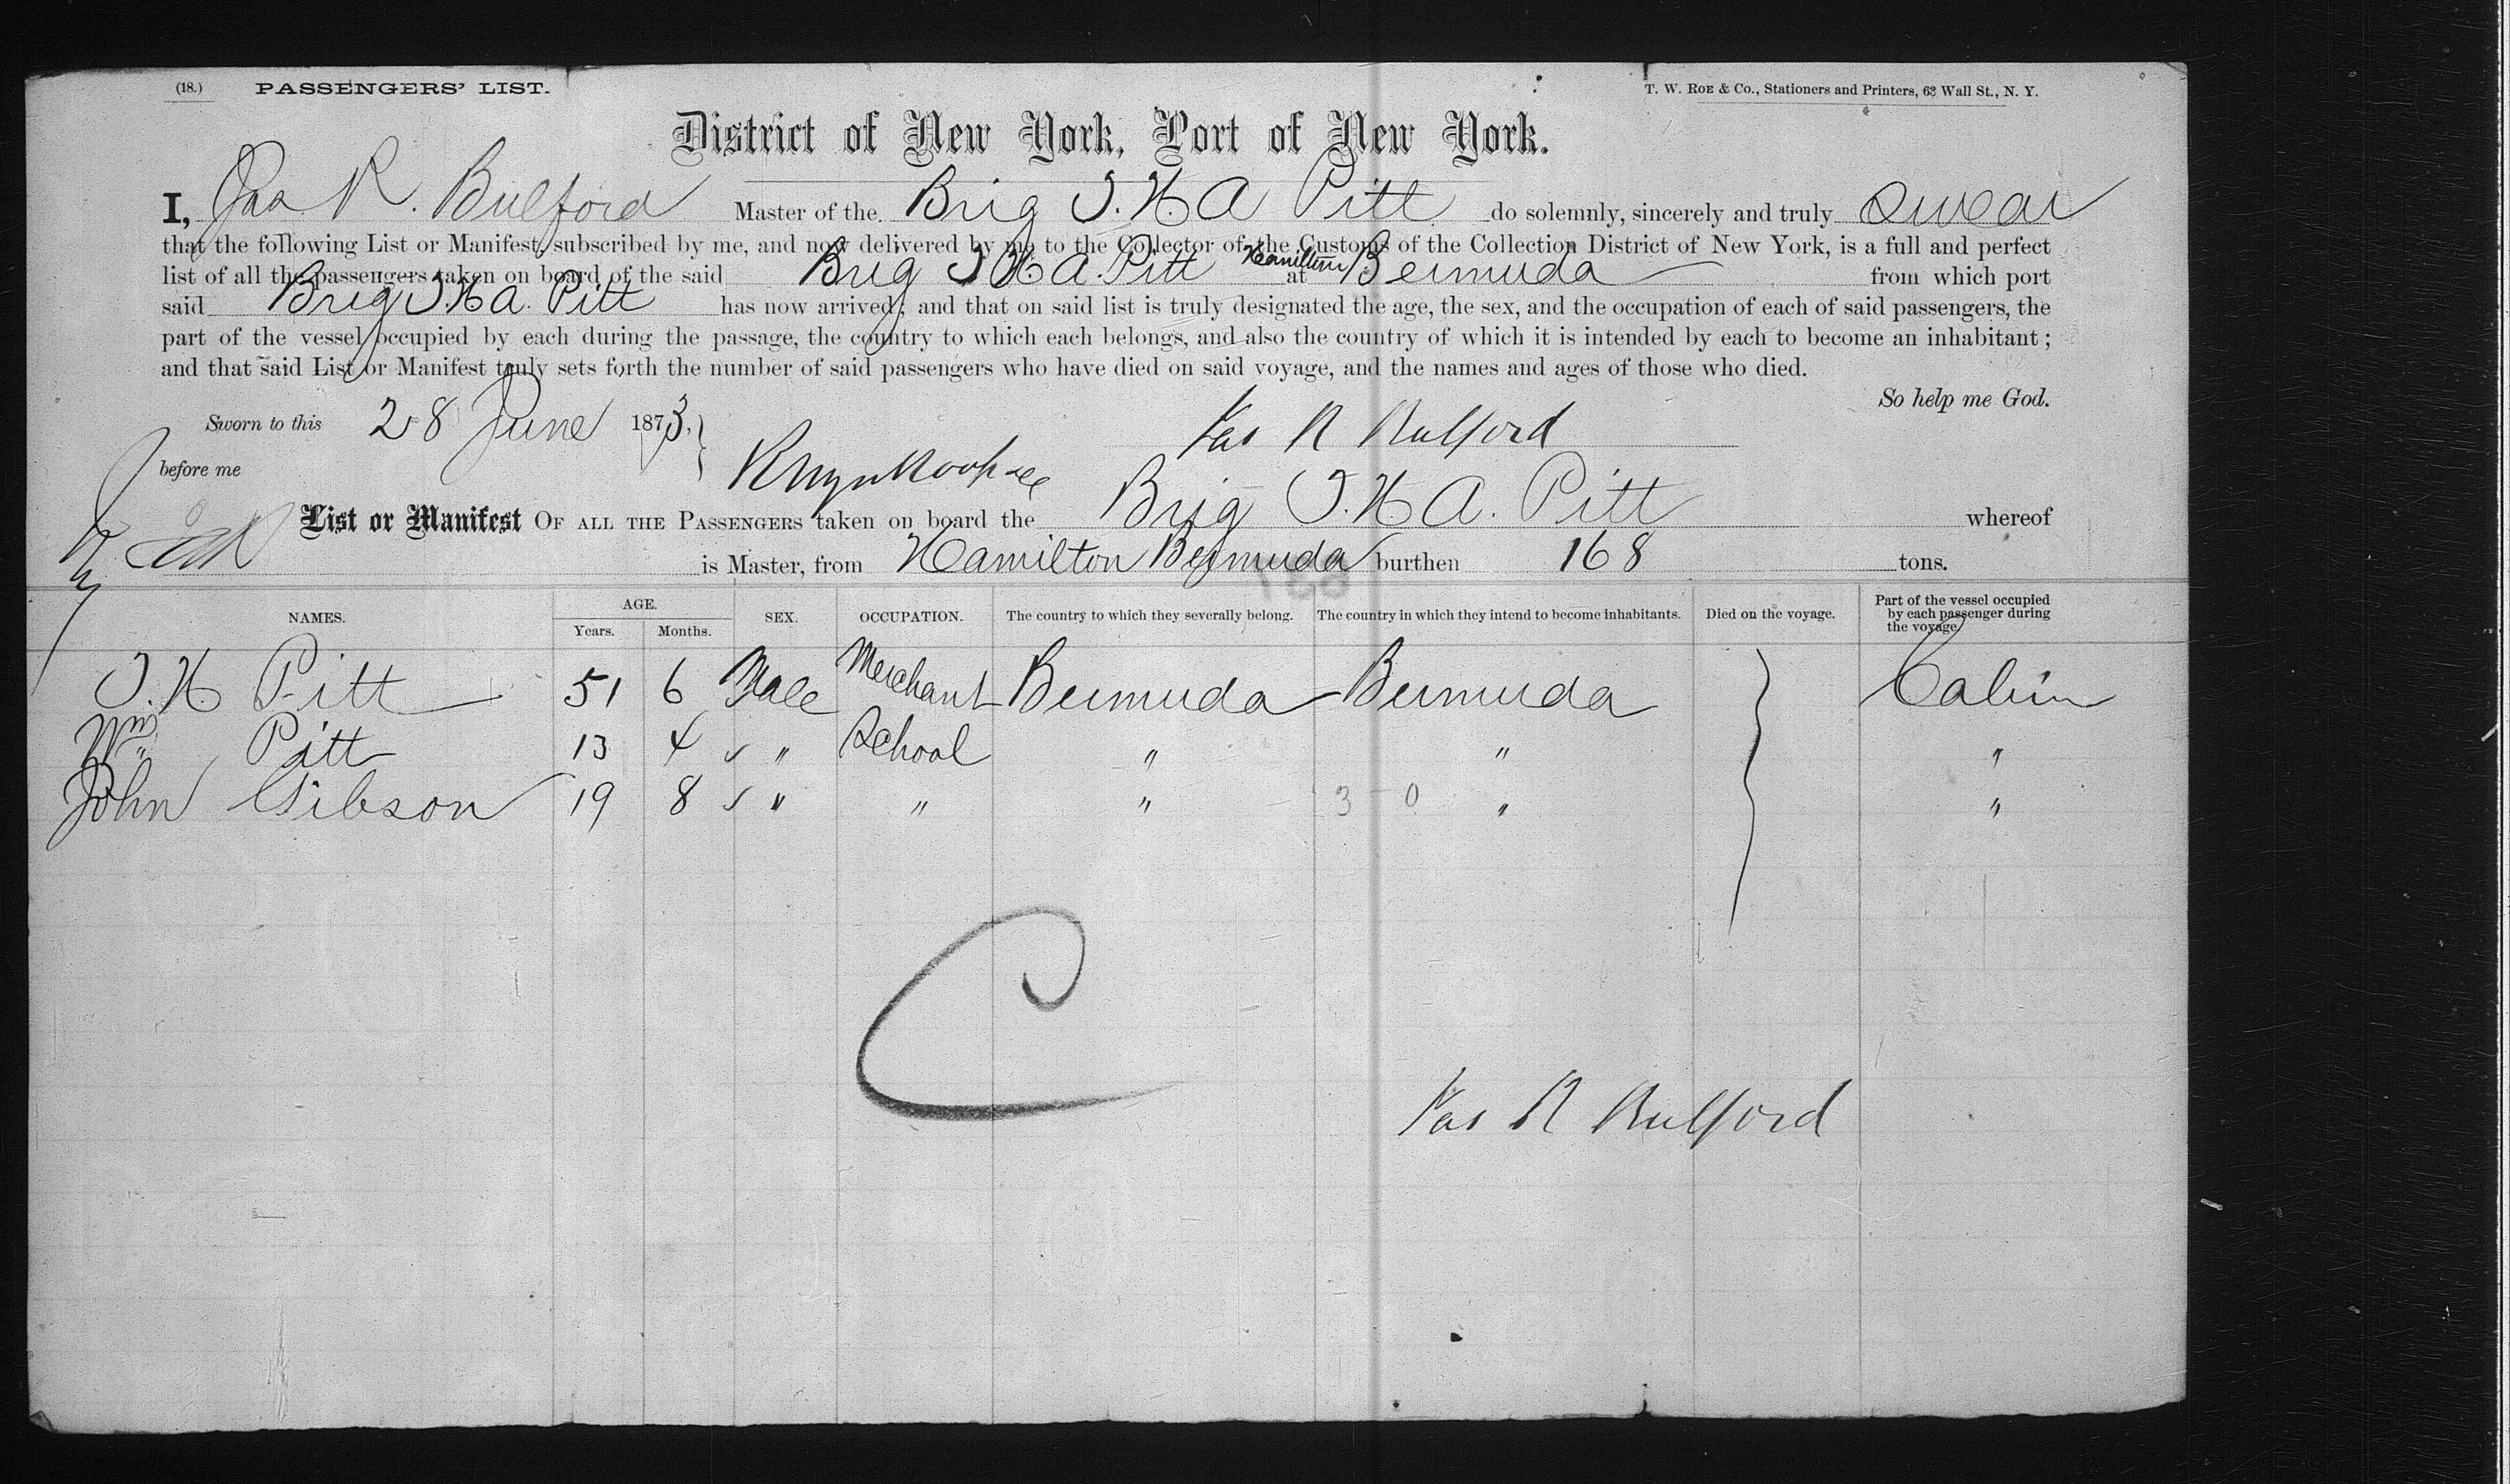 (18.) PASSENGERS' LIST. T. W. ROE & Co., Stationers and Printers, 63 Wall St., N. Y.
District of New York, Port of New York.
I, Jas R. Bulford Master of the Brig T. H. A Pitt do solemnly, sincerely and truly Swear
that the following List or Manifest, subscribed by me, and now delivered by me to the Collector of the Customs of the Collection District of New York, is a full and perfect
list of all the passengers taken on board of the said Brig T H A. Pitt at Hamilton Bermuda from which port
said Brig T. H A. Pitt has now arrived; and that on said list is truly designated the age, the sex, and the occupation of each of said passengers, the
part of the vessel occupied by each during the passage, the country to which each belongs, and also the country of which it is intended by each to become an inhabitant;
and that said List or Manifest truly sets forth the number of said passengers who have died on said voyage, and the names and ages of those who died.
So help me God.
Sworn to this 28 June 1873, Jas R Bulford
before me
List or Manifest OF ALL THE PASSENGERS taken on board the Brig T. H A. Pitt whereof
is Master, from Hamilton Bermuda burthen 168 tons.
168
NAMES. AGE. Years. Months. SEX. OCCUPATION. The country to which they severally belong. The country in which they intend to become inhabitants. Died on the voyage. Part of the vessel occupied by each passenger during the voyage.
T. H Pitt 51 6 Male Merchant Bermuda Bermuda Cabin
Wm " Pitt 13 4 " School " " "
John Gibson 19 8 " " " 3 - 0 " "
C
Jas R Bulford